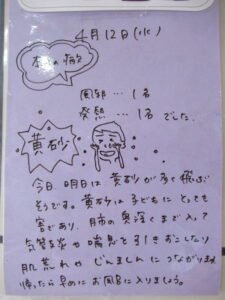 4月12日(火)
本日の病欠
風邪…1名
発熱…1名 でした。
黄砂
今日、明日は 黄砂が多く飛ぶ
そうです。黄砂は子どもにとっても
害であり、肺の奥深くまで入って
気管支炎や喘息を引きおこしたり
肌荒れや じんましんにつながります
帰ったら早めに お風呂に入りましょう。